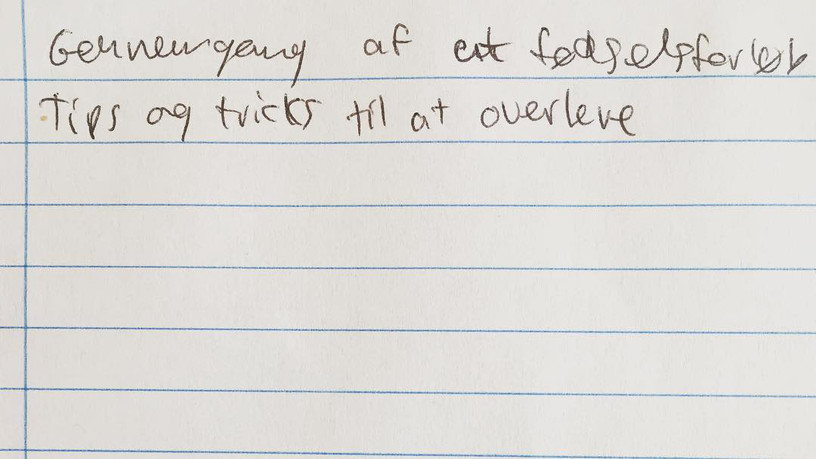 Gennemgang af et fødselsforløb
Tips og tricks til at overleve